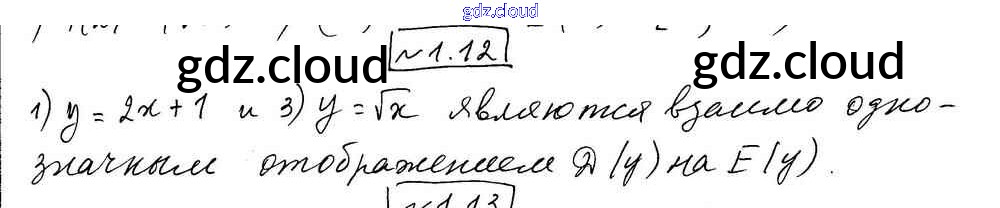 gdz.cloud
№1.12
gdz.cloud gdz.cloud
1) y = 2x + 1 и 3) y = √x являются взаимо одно-
значным отображением D(y) на E(y).
№1.13